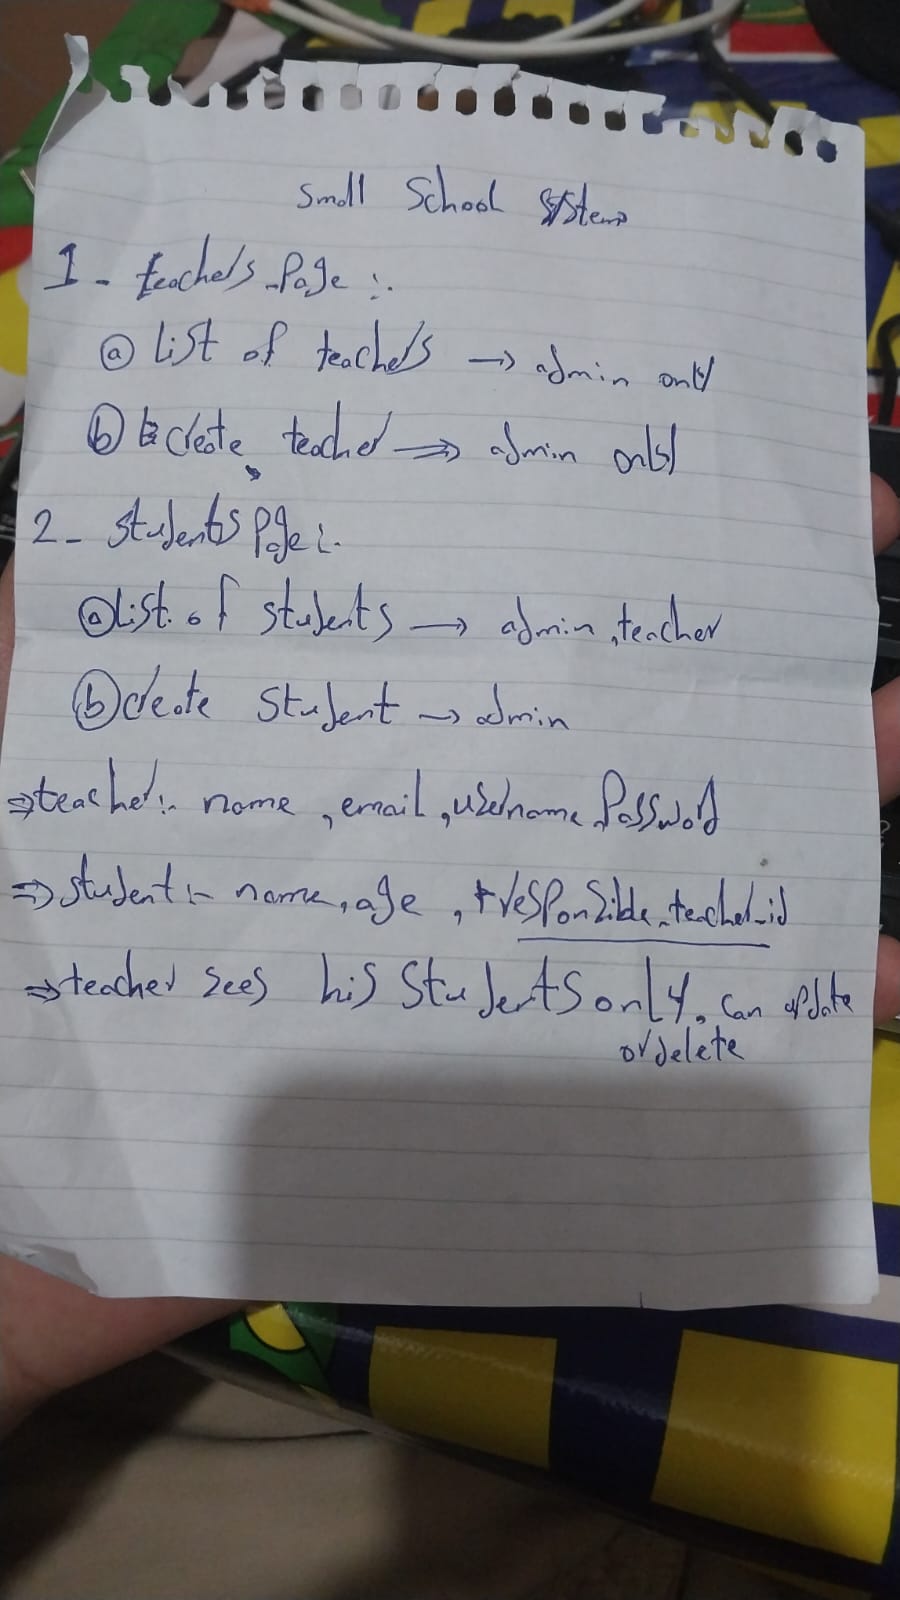 Small School System
1- teachers-Page :-
ⓐ list of teachers → admin only
ⓑ create teacher ⇒ admin only
2- students Page :-
ⓐ list of students → admin, teacher
ⓑ create student → admin
⇒ teacher :- name, email, username, Password
⇒ student :- name, age, responsible-teacher-id
⇒ teacher sees his students only, can update
or delete